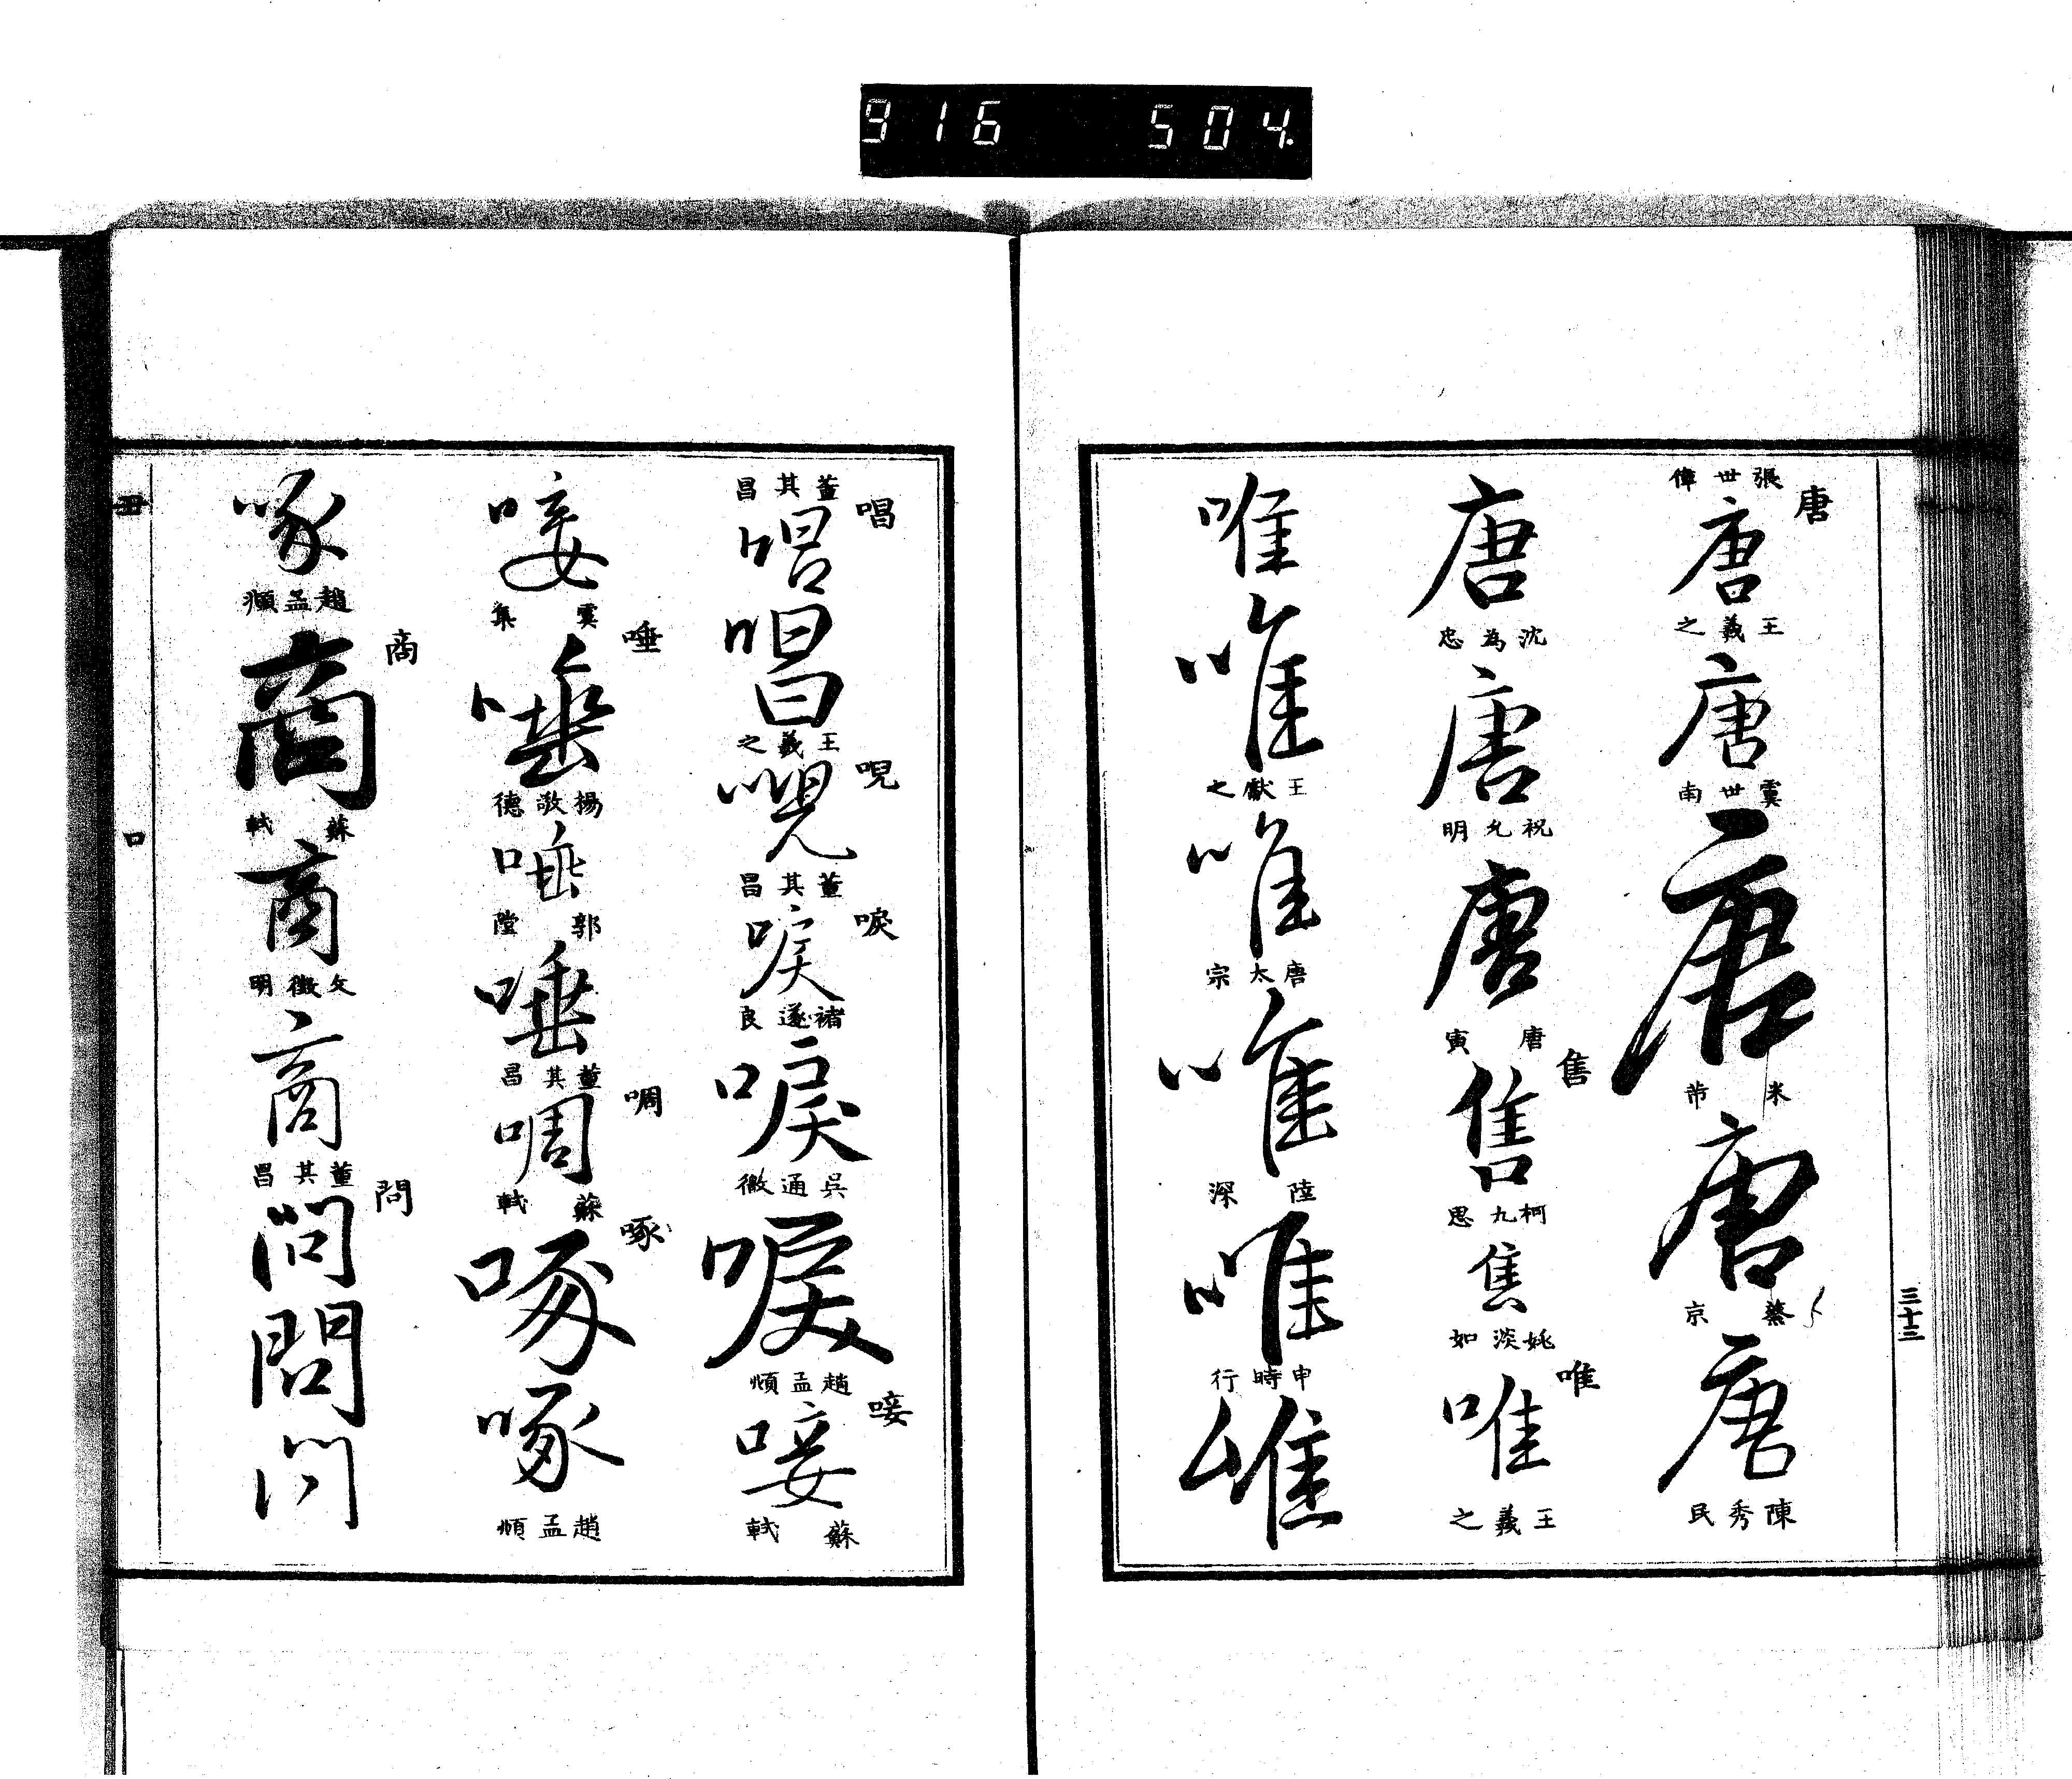 916 504.
三十三
唐
張世偉
唐
王羲之
唐
虞世南
唐
米芾
唐
蔡京
唐
陳秀民
唐
沈為忠
唐
祝允明
唐
唐寅
售
售
柯九思
售
姚淡如
唯
唯
王羲之
唯
唯
王獻之
唯
唐太宗
唯
陸深
唯
申時行
唯
唱
董其昌
唱
唱
王羲之
唲
唲
董其昌
唳
唳
褚遂良
唳
吳通微
唳
趙孟頫
唼
唼
蘇軾
唼
虞集
唾
唾
楊敬德
唾
郭陞
唾
董其昌
啁
啁
蘇軾
啄
啄
啄
趙孟頫
啄
趙孟頫
商
商
蘇軾
商
文徵明
商
董其昌
問
問
問
問
丑
口